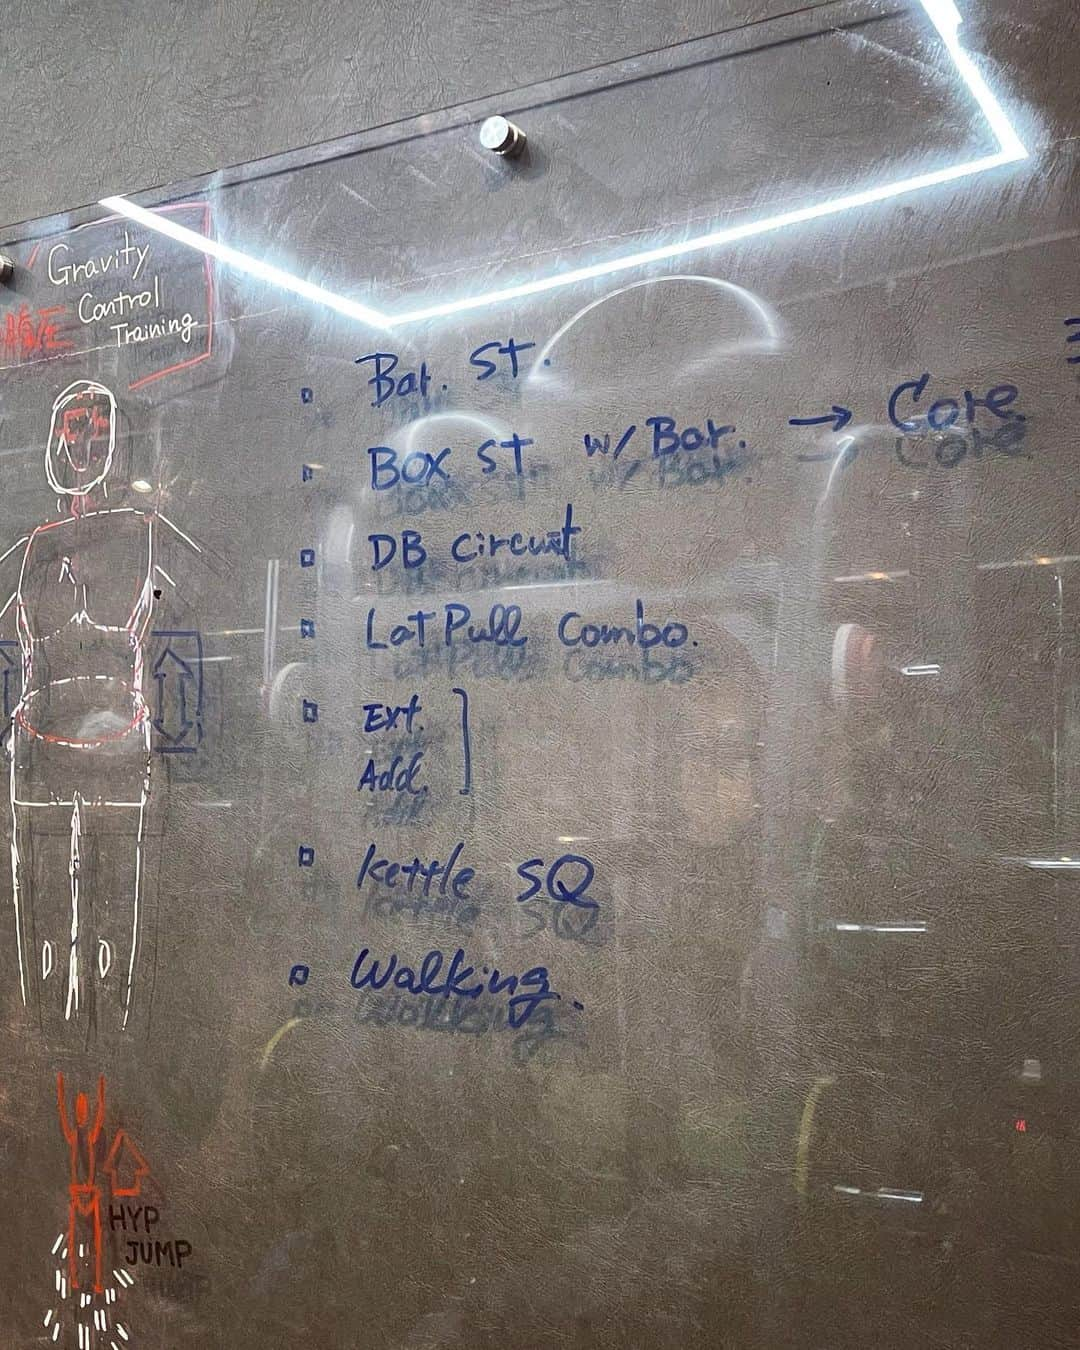 Gravity
Control
Training
Bar. ST.
Box ST. w/ Bar. → Core
DB Circuit
Lat Pull Combo.
Ext.
Add.
Kettle SQ
Walking.
HYP
JUMP